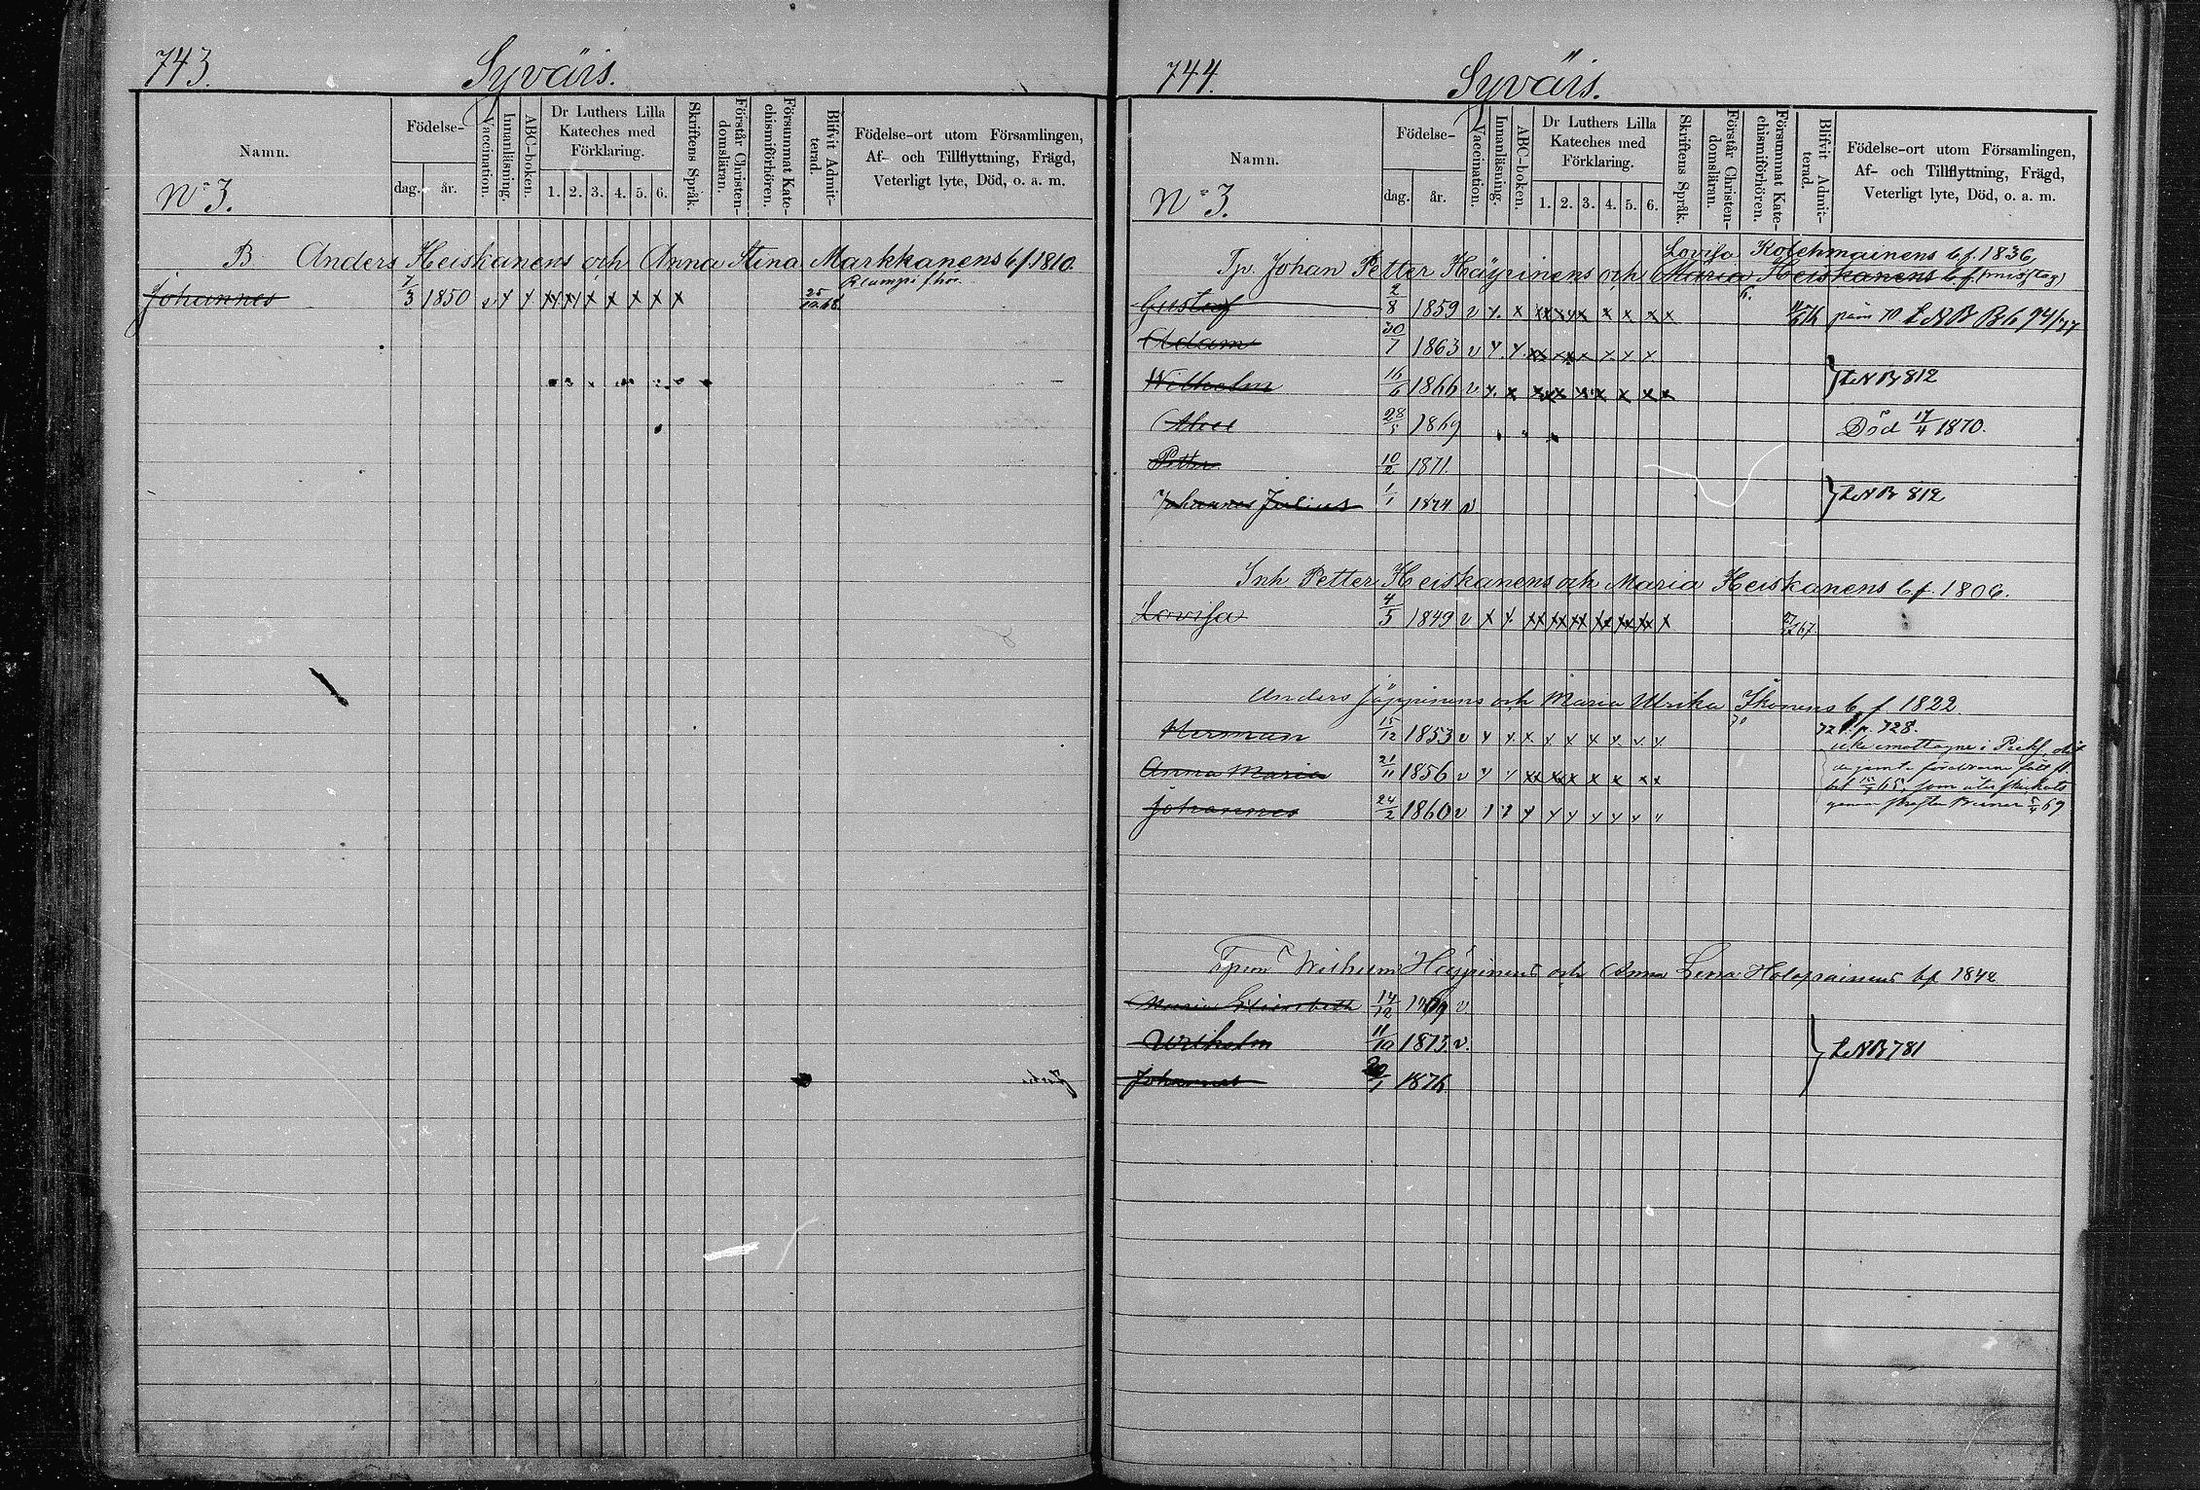 743.
Syväis.
Namn.
Födelse-
dag.
år.
Vaccination.
Innanläsning.
ABC-boken.
Dr Luthers Lilla
Kateches med
Förklaring.
1. 2. 3. 4. 5. 6.
Skriftens Språk.
Förstår Christen-
domsläran.
Försummat Kate-
chismiförhören.
Blifvit Admit-
terad.
Födelse-ort utom Församlingen,
Af- och Tillflyttning, Frägd,
Veterligt lyte, Död, o. a. m.
No 3.
B. Anders Heiskanens och Anna Stina Markkanens b f 1810.
Johannes 7/3 1850 v
744.
Syväis.
Namn.
Födelse-
dag.
år.
Vaccination.
Innanläsning.
ABC-boken.
Dr Luthers Lilla
Kateches med
Förklaring.
1. 2. 3. 4. 5. 6.
Skriftens Språk.
Förstår Christen-
domsläran.
Försummat Kate-
chismiförhören.
Blifvit Admit-
terad.
Födelse-ort utom Församlingen,
Af- och Tillflyttning, Frägd,
Veterligt lyte, Död, o. a. m.
No 3.
Lovisa Kolehmainens b f. 1836
Tp. Johan Petter Häyrinens och Maria Heiskanens b. f. (misstag)
Gustaf 2/8 1859 v 94/77
Adam 30/7 1863 v
Wilhelm 16/6 1866 v LNB 812
Abel 28/5 1869 Död 17/4 1870.
Petter 10/2 1871.
Johannes Julius 1/1 1874 v LNB 812
Inh Petter Heiskanens och Maria Heiskanens b f. 1806.
Lovisa 4/5 1849 v 67
Anders Jäppinens och Maria Ulrika Ikonens b f 1822.
Herman 15/12 1853 v p. 728.
Anna Maria 21/11 1856 v
Johannes 24/2 1860 v
Wilhelm Häyrinens och Anna Lena Holopainens bf 1842
Maria Elisabeth 14/12 1869 v
Wilhelm 11/10 1873 v. LNB 781
Johannes 20/1 1876